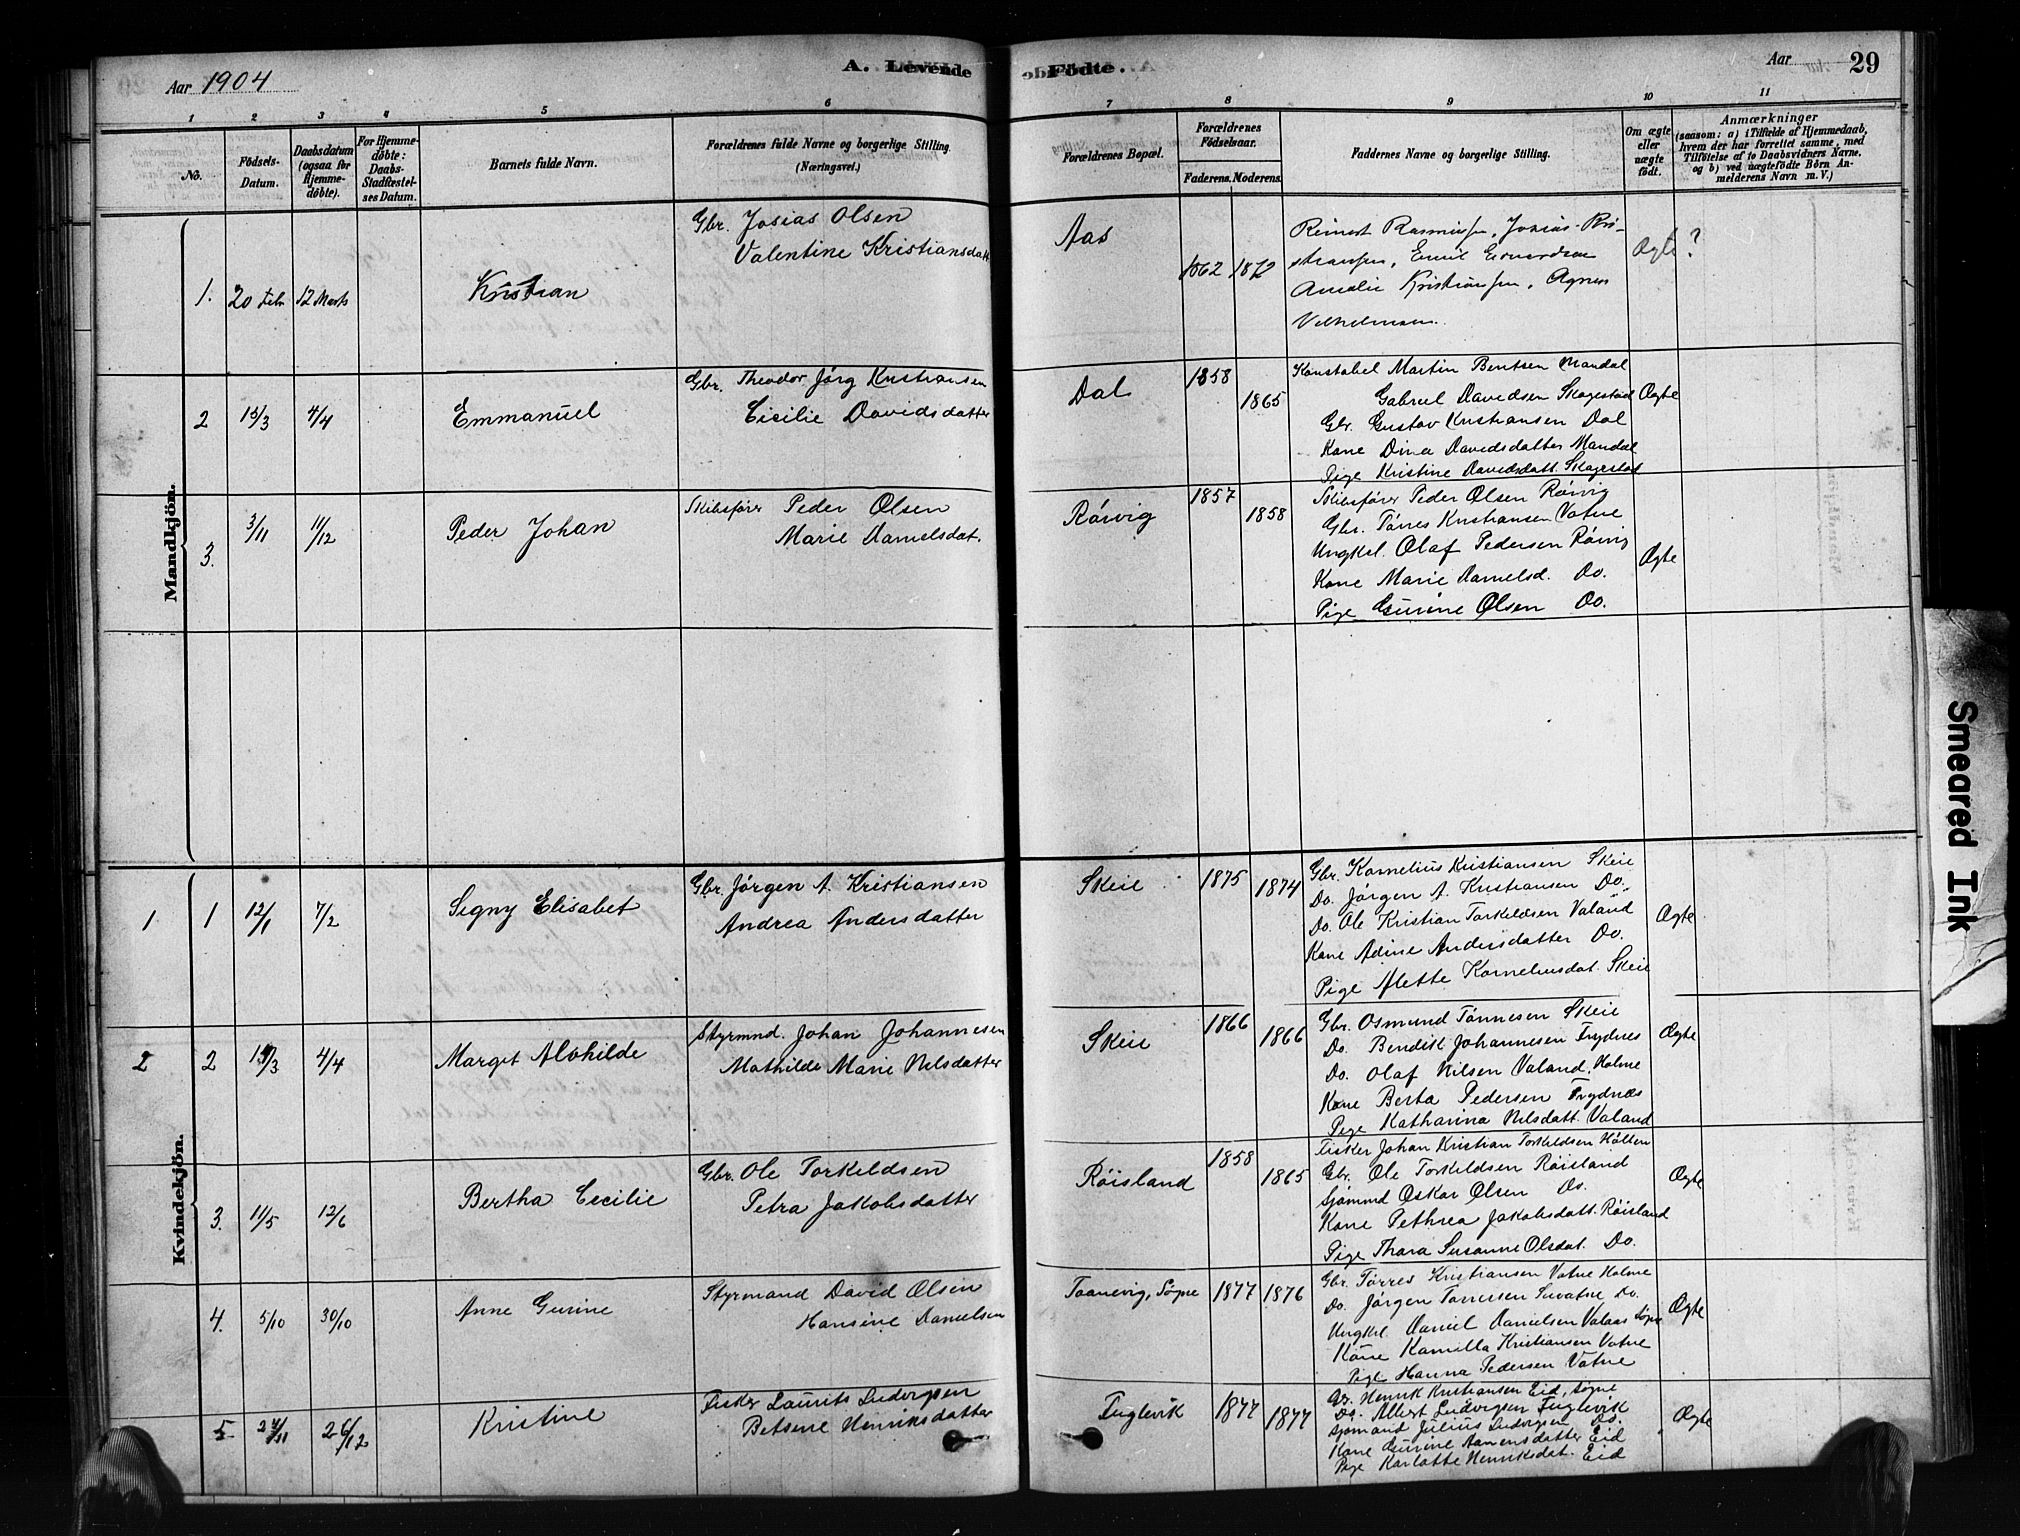 Aar 1904
A. Levende
Födte.
Aar
29
1
2
3
4
5
6
7
8
9
10
11
No.
Födsels-
Datum.
Daabsdatum
(ogsaa for
Hjemme-
døbte).
For Hjemme-
døbte:
Daabs-
Stadfæstel-
ses Datum.
Barnets fulde Navn.
Forældrenes fulde Navne og borgerlige Stilling.
(Næringsvei.)
Forældrenes Bopæl.
Forældrenes
Fødselsaar.
Faderens. Moderens.
Faddernes Navne og borgerlige Stilling.
Om ægte
eller
uægte
födt.
Anmærkninger
(saasom: a) i Tilfælde af Hjemmedaab,
hvem der har forrettet samme, med
Tilföielse af to Daabsvidners Navne,
og b) ved uægtefödte Börn An-
melderens Navn m. V.)
Mandkjön.
1. 20 Febr 12 Marts
Kristian
Gbr. Josias Olsen
Valentine Kristiansdatt
Aas
1862 1872
Reinert Rasmussen, Josias
Emil
Amalie Kristiansen, Agnes
Vilhelmsen.
Ægte ?
2 13/3 4/4
Emmanuel
Gbr. Theodor Jörg Kristiansen
Cicilie Davidsdatter
Dal
1858
1865
Konstabel Martin Bentsen Mandal
Gabriel Davidsen Skagestad
Gbr. Gustav Kristiansen Dal
Kone Dina Davidsdatter Mandal
Pige Kristine Davidsdatt. Skagestad
Ægte
3. 3/11 11/12
Peder Johan
Skibsfører Peder Olsen
Marie Danielsdat.
Röivig
1857
1858
Skibsfører Peder Olsen Röivig
Gbr. Törres Kristiansen Vatne
Ungkl. Olaf Pedersen Röivig
Kone Marie Danielsd. Do.
Pige Gurine Olsen Do.
Ægte
Kvindekjön.
1 1 12/1 7/2
Signy Elisabet
Gbr. Jörgen A. Kristiansen
Andrea Andersdatter
Skeie
1875
1874
Gbr. Kornelius Kristiansen Skeie
Do. Jörgen A. Kristiansen Do.
Do. Ole Kristian Torkeldsen Valand
Kone Adine Andersdatter Do.
Pige Alette Korneliusdat. Skeie
Ægte
2 2 13/3 4/4
Margit Alvhilde
Styrmnd. Johan Johannesen
Mathilde Marie Nilsdatter
Skeie
1866
1866
Gbr. Osmund Tönnesen Skeie
Do. Bendik Johannesen Frydnes
Do. Olaf Nilsen Valand, Holme
Kone Berta Pedersen Frydnæs
Pige Katharina Nilsdatt. Valand
Ægte
3. 11/5 12/6
Bertha Cecilie
Gbr. Ole Torkeldsen
Petra Jakobsdatter
Röisland
1858
1865
Fisker Johan Kristian Torkildsen
Gbr. Ole Torkildsen Röisland
Sjömnd Oskar Olsen Do.
Kone Pethrea Jakobsdatt. Röisland
Pige Thora Susanne Olsdat. Do.
Ægte
4. 5/10 30/10
Anne Gurine
Styrmand David Olsen
Hansine Danielsen
Taanevig, Søgne
1877 1876
Gbr. Törres Kristiansen Vatne Holme
Do. Jörgen Do.
Ungkl. Daniel Danielsen Valaas Søgne
Kone Kamilla Kristiansen Vatne
Pige Hanna Pedersen Vatne
Ægte
5 26/12
Kristine
Fisker Laurits Ludvigsen
Betsene Henriksdatter
Fuglevik
1877 1877
Gbr. Henrik Kristiansen Eid, Søgne
Do. Albert Ludvigsen Fuglevik
Sjömand Julius Ludvigsen Do.
Kone Gurine Aanensdatter Eid
Pige Karlotte Henriksdat. Eid
Ægte
Smeared Ink